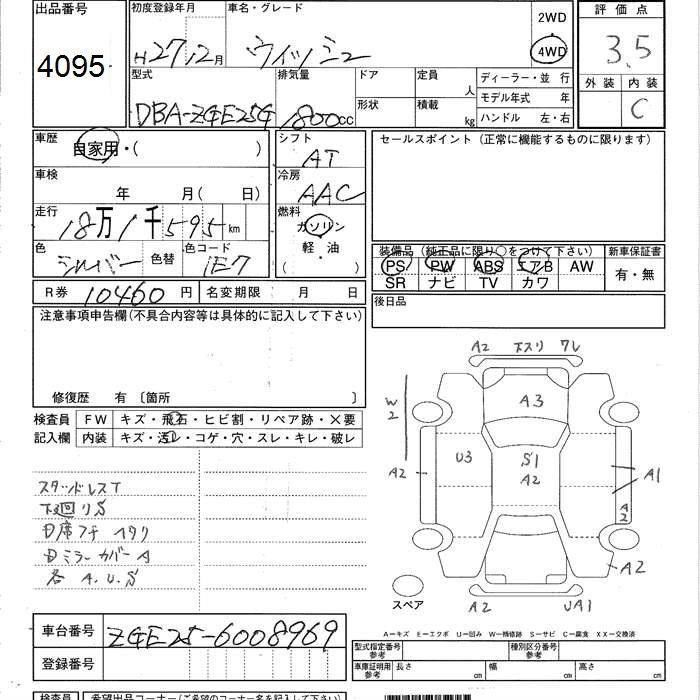 出品番号 初度登録年月 車名・グレード 2WD 評価点
4095 H27.2月 ウィッシュ 4WD 3.5
外装 内装
C
型式 排気量 ドア 定員 人 ディーラー・並行
DBA-ZGE25G 1800cc 形状 積載 kg モデル年式 年
ハンドル 左・右
車歴 自家用・( ) シフト AT セールスポイント(正常に機能するものに限ります)
車検 年 月(日) 冷房 AAC
走行 18万1千595km 燃料 ガソリン
軽・油
( )
色 シルバー 色替 色コード 1E7
装備品(純正品に限り○をつけて下さい) 新車保証書
PS PW ABS エアB AW 有・無
SR ナビ TV カワ
R券 10460円 名変期限 月 日 後日品
注意事項申告欄(不具合内容等は具体的に記入して下さい)
修復歴 有 〔箇所 〕
検査員 FW キズ・飛石・ヒビ割・リペア跡・×要
記入欄 内装 キズ・汚レ・コゲ・穴・スレ・キレ・破レ
スタッドレスT
下廻りS
D席フチ ヘタリ
Dミラーカバー A
各 A.U.S
A2 下スリ ワレ
W2
A3
U3
S1
A2
A2
A1
A2
A2
スペア
A2 UA1
A-キズ E-エクボ U-凹み W-補修跡 S-サビ C-腐食 XX-交換済
車台番号 ZGE25-6008969
登録番号
型式指定番号 参考 種別区分番号 参考
車庫証明用 参考 長さ cm 幅 cm 高さ cm
検査員 希望出品コーナー(ご希望のコーナー名を記入下さい)